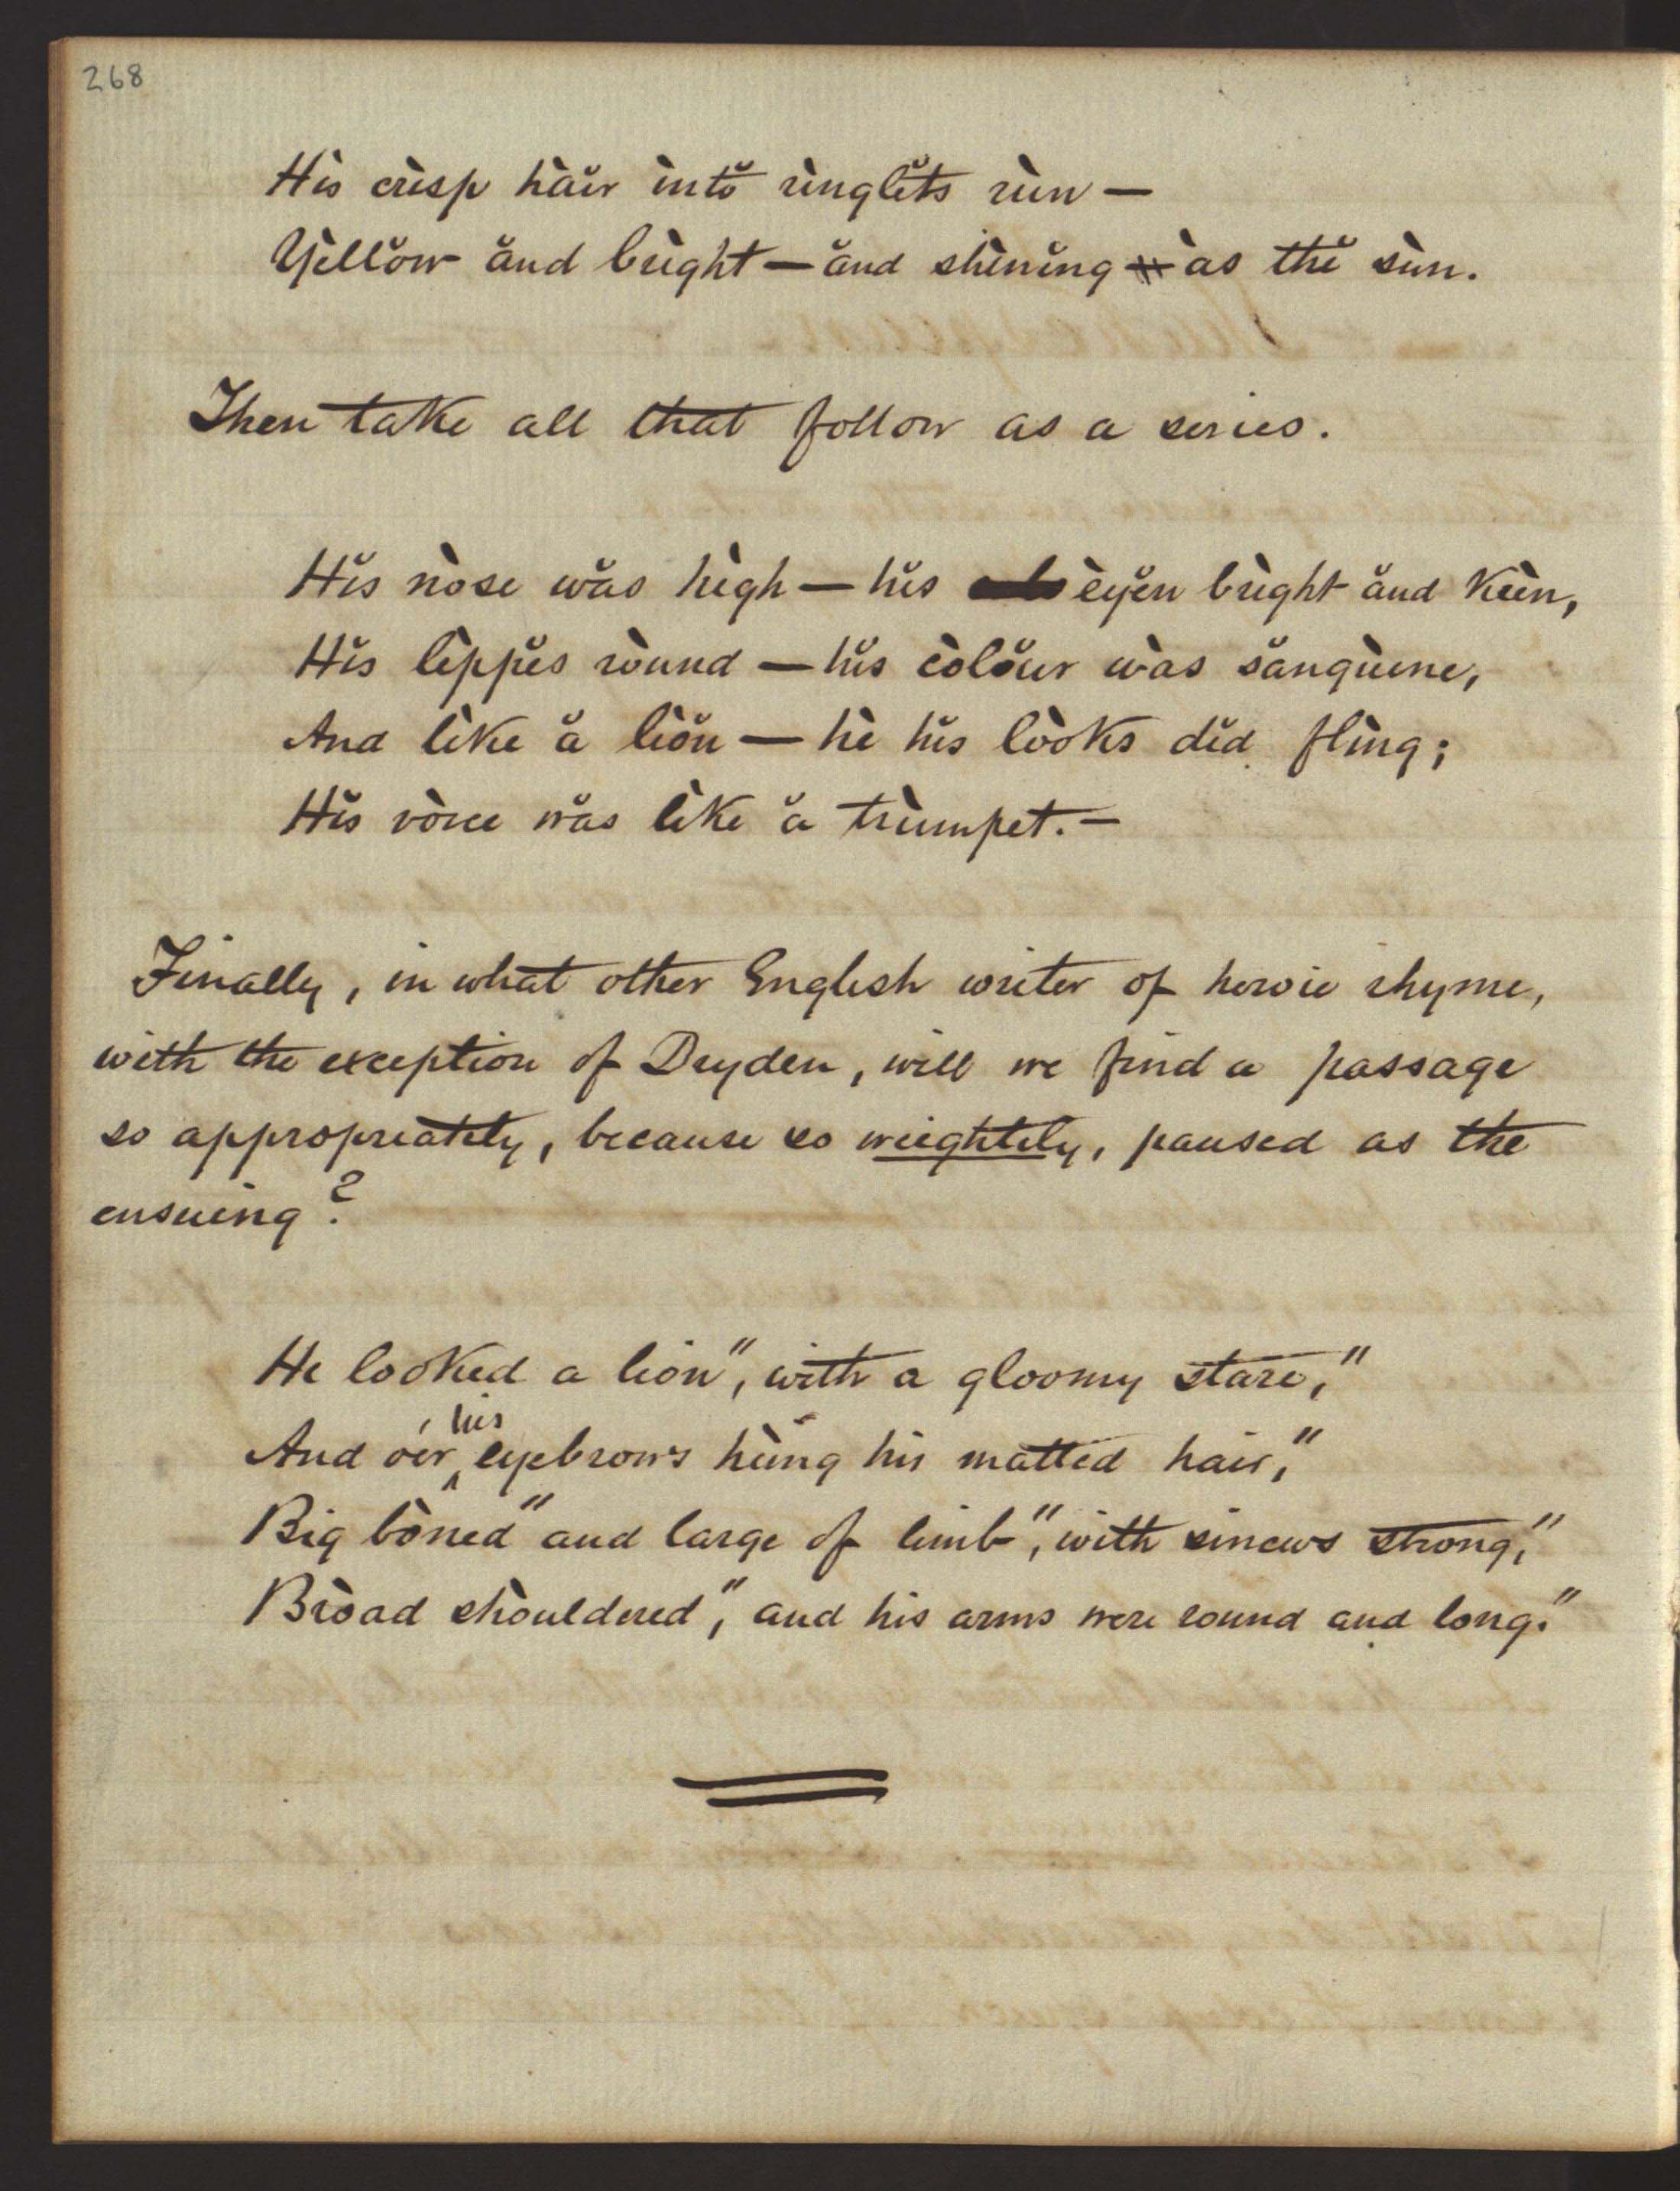 268
Hìs crìsp hàir ìntŏ rìnglĕts rùn —
Yèllŏw ănd brìght — ănd shìnĭng as thĕ sùn.
Then take all that follow as a series.
Hĭs nòse wăs hìgh — hĭs èyĕn brìght ănd kèen,
Hĭs lìppĕs ròund — hĭs còlŏur wàs sănguìne,
And lìke ă lìŏn — hè hĭs lòoks dĭd flìng;
Hĭs vòice wăs lìke ă trùmpet. —
Finally, in what other English writer of heroic rhyme,
with the exception of Dryden, will we find a passage
so appropriately, because so weightily, paused as the
ensuing?
He looked a lion", with a gloomy stare,"
And o'er his eyebrows hùng his matted hair,"
Big bòned" and large of limb", with sinews strong,"
Bròad shòuldered", and his arms were round and long."